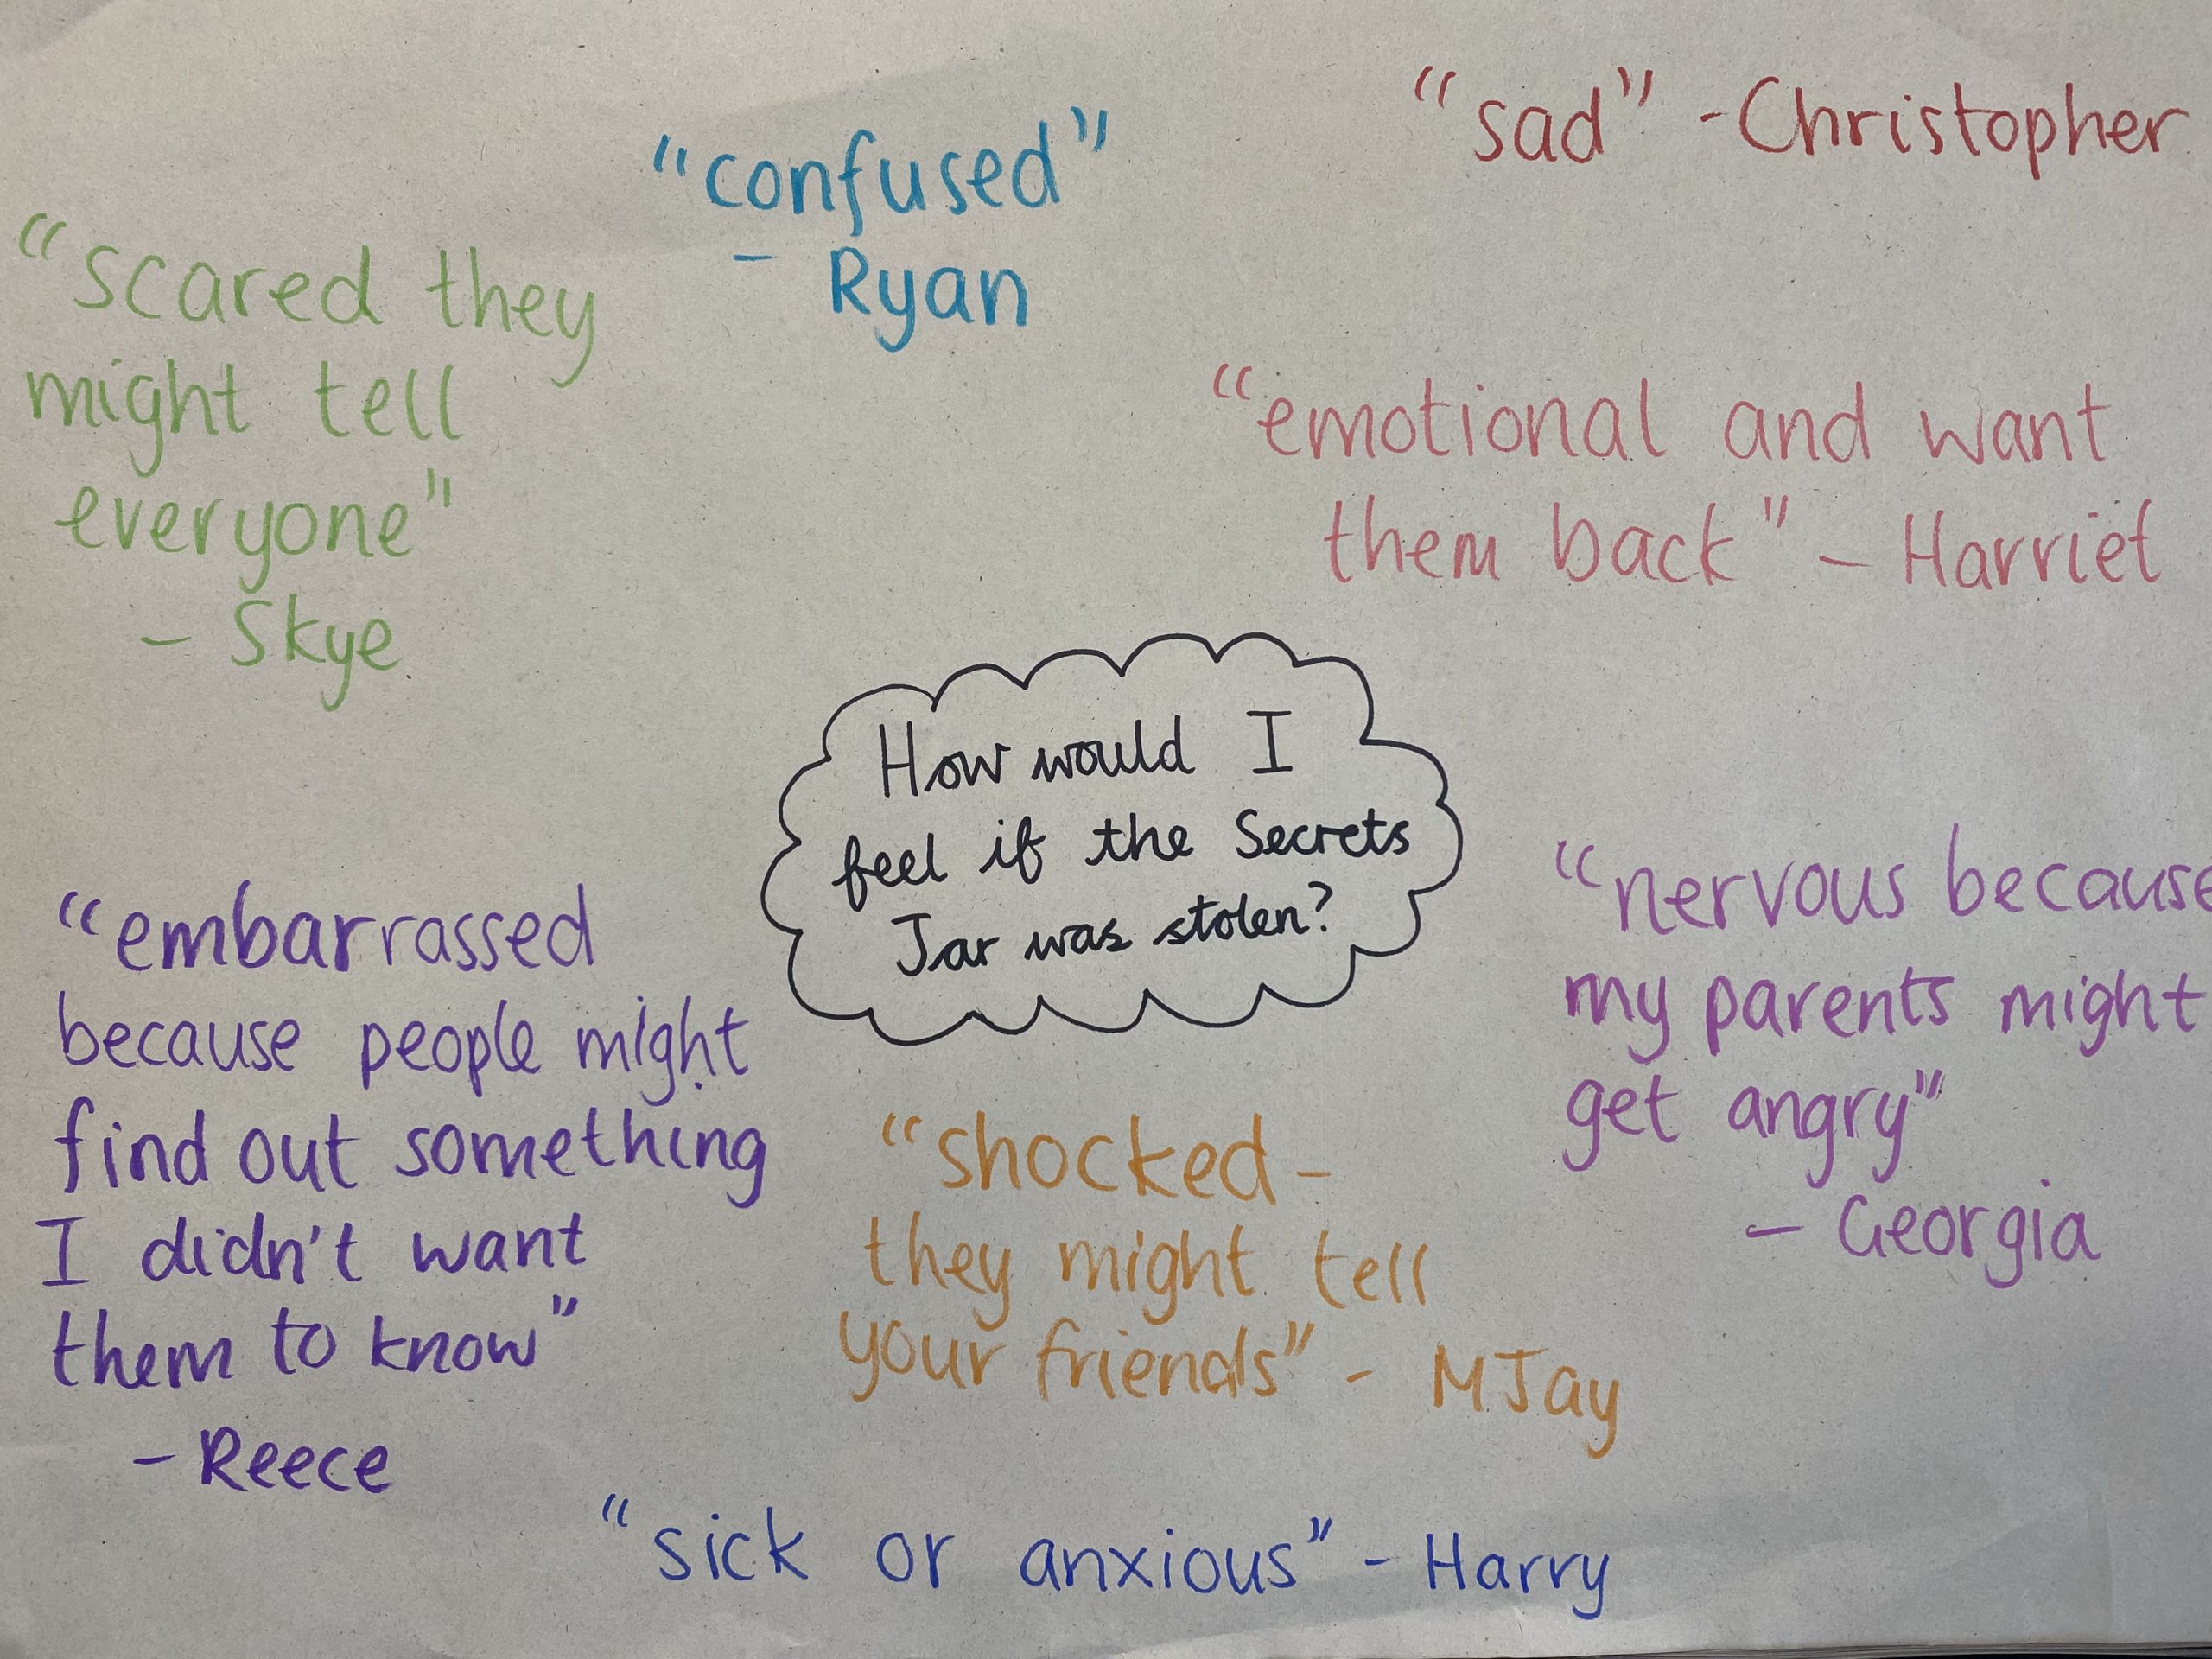 "sad" - Christopher
"confused"
- Ryan
"scared they
might tell
everyone"
- Skye
"emotional and want
them back" - Harriet
How would I
feel if the Secrets
Jar was stolen?
"nervous because
my parents might
get angry"
- Georgia
"embarrassed
because people might
find out something
I didn't want
them to know"
- Reece
"shocked -
they might tell
your friends" - MJay
"sick or anxious" - Harry